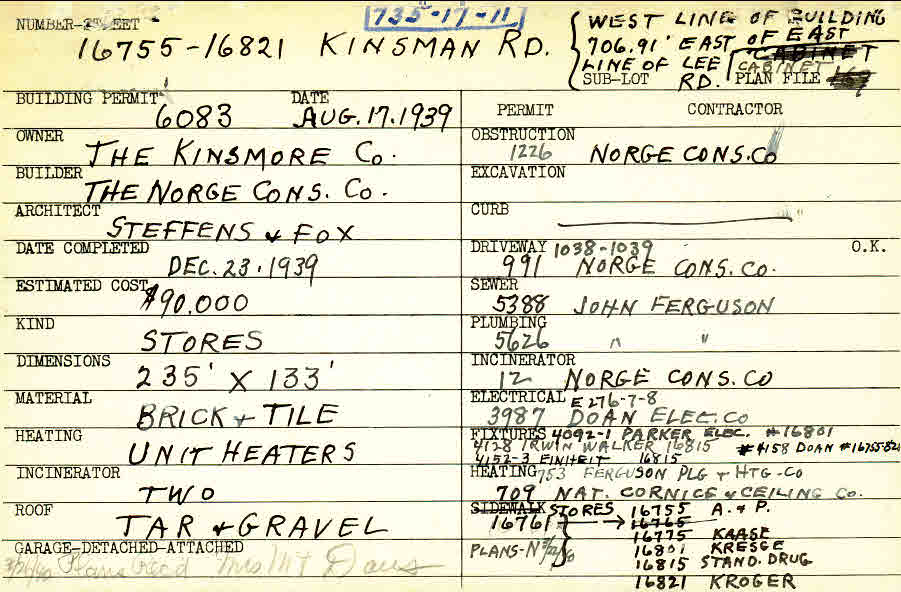 735-17-11
NUMBER-STREET
16755-16821 KINSMAN RD.
WEST LINE OF BUILDING
706.91' EAST OF EAST
LINE OF LEE CABINET
RD. CABINET
SUB-LOT PLAN FILE
BUILDING PERMIT DATE
6083 AUG.17.1939
OWNER
THE KINSMORE Co.
BUILDER
THE NORGE CONS. Co.
ARCHITECT
STEFFENS & FOX
DATE COMPLETED
DEC. 23. 1939
ESTIMATED COST
$90.000
KIND
STORES
DIMENSIONS
235' X 133'
MATERIAL
BRICK + TILE
HEATING
UNIT HEATERS
INCINERATOR
TWO
ROOF
TAR & GRAVEL
GARAGE-DETACHED-ATTACHED
Plans Rec'd Mrs
PERMIT CONTRACTOR
OBSTRUCTION
1226 NORGE CONS. Co
EXCAVATION
CURB
DRIVEWAY 1038-1039 O.K.
991 NORGE CONS. Co.
SEWER
5388 JOHN FERGUSON
PLUMBING
5626 " "
INCINERATOR
12 NORGE CONS. CO
ELECTRICAL E276-7-8
3987 DOAN ELEC. CO
FIXTURES 4092-1 PARKER ELEC. #16801
4128 IRWIN WALKER 16815 #4158 DOAN #16755-821
4152-3 EINHEIT 16815
HEATING 753 FERGUSON PLG & HTG-CO
709 NAT. CORNICE & CEILING Co.
SIDEWALK STORES 16755 A. & P.
16761 → 16765
16775 KAASE
PLANS-N 16801 KRESGE
16815 STAND. DRUG
16821 KROGER